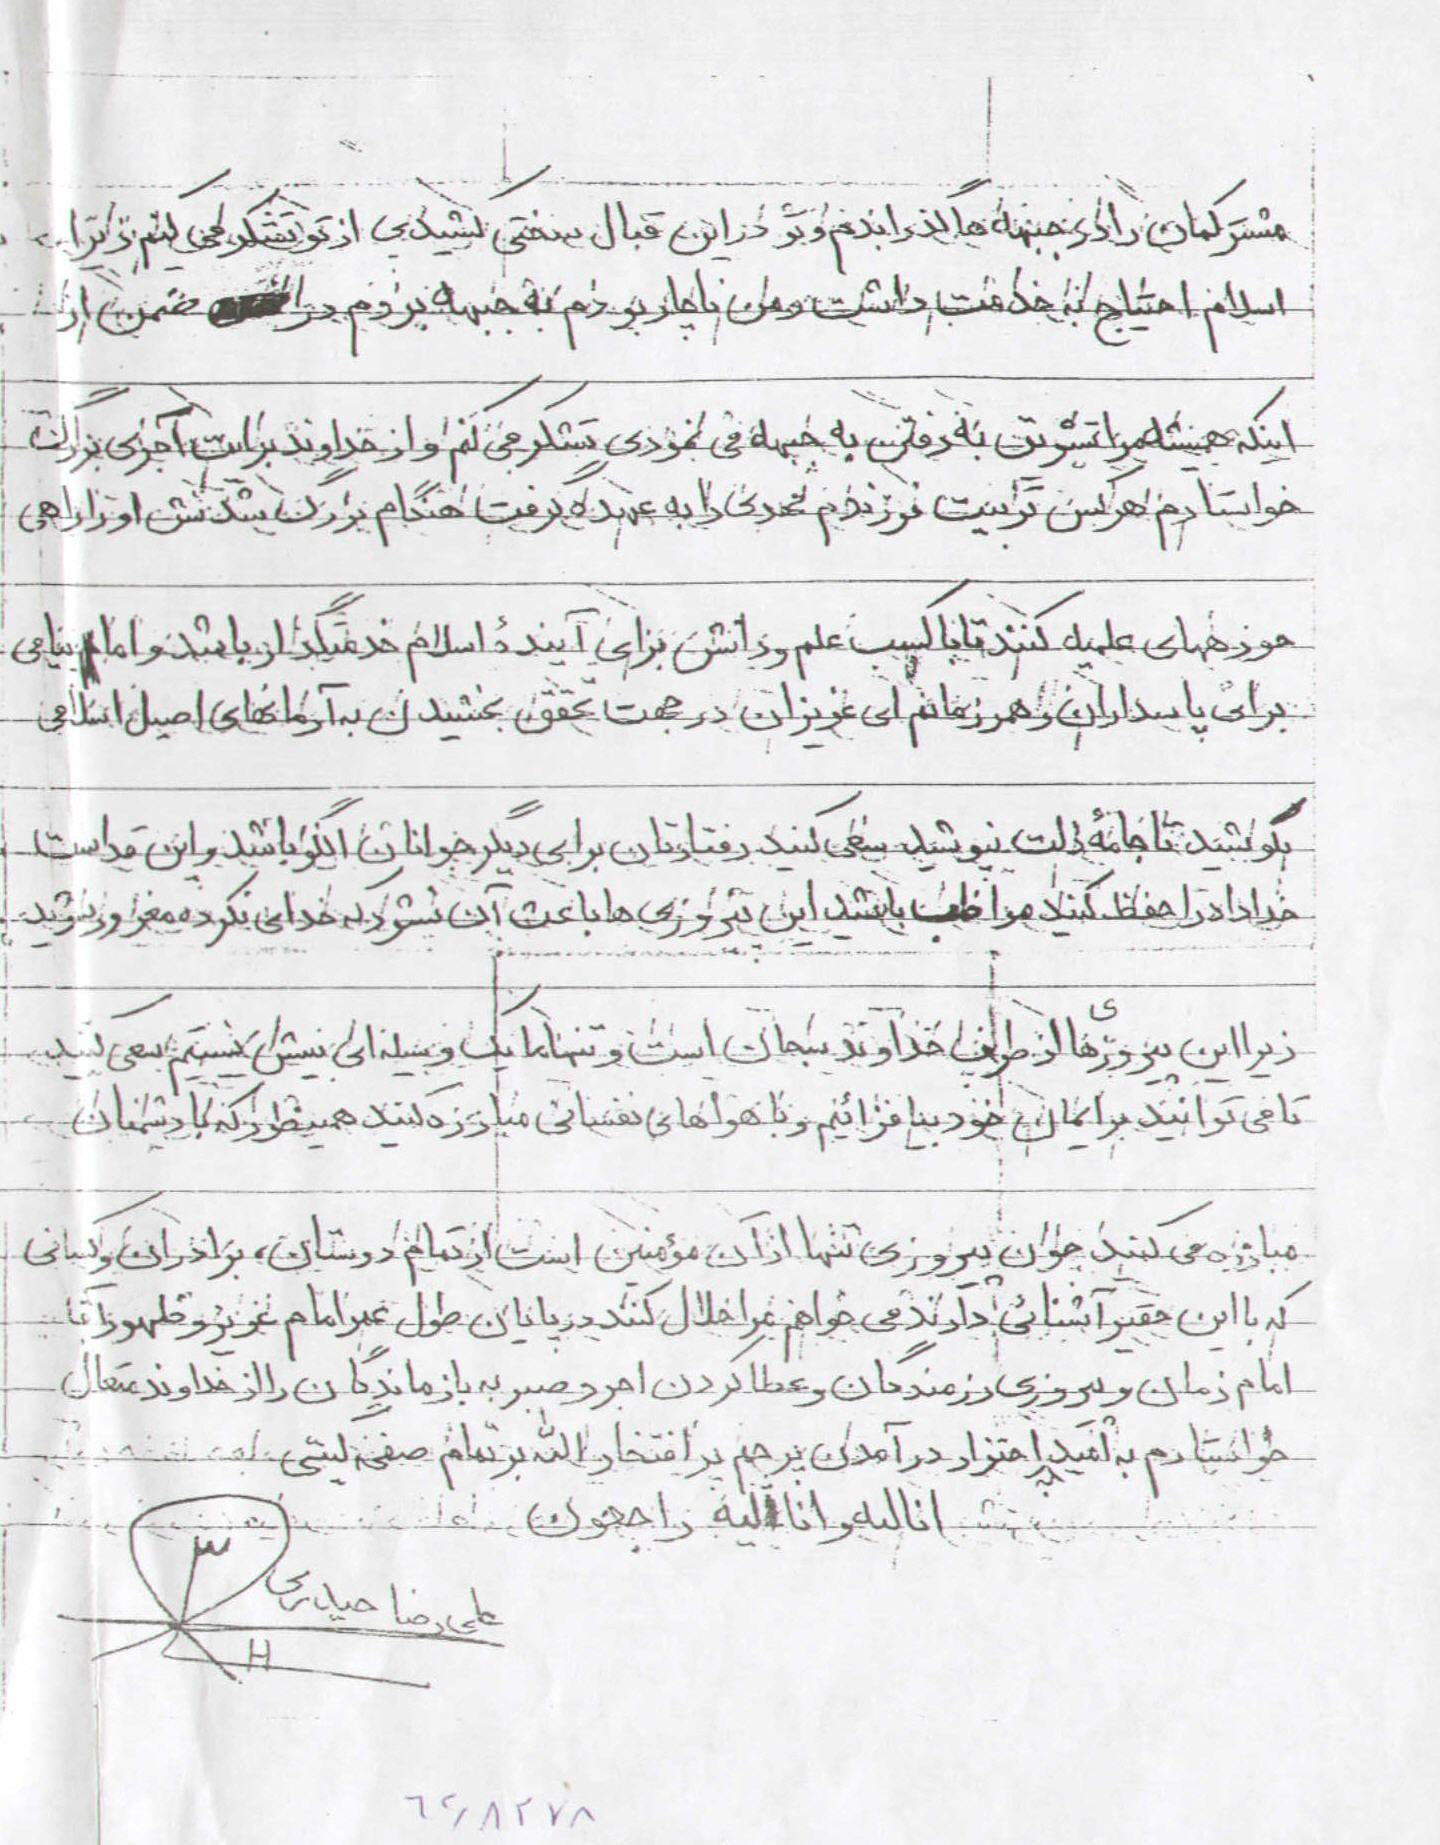 مشترکمان را در جبهه ها گذراندم و تو در این قبال سختی کشیدی از تو تشکر می کنم زیرا
اسلام احتیاج به خدمت داشت و من ناچار بودم به جبهه بروم در ضمن از
اینکه همیشه مرا تشویق به رفتن به جبهه می نمودی تشکر می کنم و از خداوند برایت آجری بزرگ
خواستارم هرکس تربیت فرزندم مهدی را به عهده گرفت هنگام بزرگ شدنش او را راهی
حوزههای علمیه کنند تا با کسب علم و دانش برای آیندهٔ اسلام خدمتگذار باشد و اما پیامی
برای پاسداران و همرزمانم ای عزیزان در جهت تحقق بخشیدن به آرمانهای اصیل اسلامی
بکوشید تا جامهٔ ذلت نپوشید سعی کنید رفتارتان برای دیگر جوانان الگو باشد و این قداست
خداداد را حفظ کنید مواظب باشید این پیروزی ها باعث آن نشود که خدای نکرده مغرور نشوید
زیرا این پیروزیها از طرف خداوند سبحان است و تنها ما یک وسیله ای بیش نیستیم سعی کنید
تا می توانید بر ایمان خود بیافزائیم و با هواهای نفسانی مبارزه کنید همینطور که با دشمنان
مبارزه می کنید چون پیروزی تنها از آن مؤمنین است از تمام دوستان، برادران و کسانی
که با این حقیر آشنائی دارند می خواهم مرا حلال کنند در پایان طول عمر امام عزیز و ظهور آقا
امام زمان و پیروزی رزمندگان و عطا کردن اجر و صبر به بازماندگان را از خداوند متعال
خواستارم به امید به اهتزار در آمدن پرچم پر افتخار الله بر تمام صفحه گیتی
انالله و انا الیه راجعون
علی رضا حیدری
H